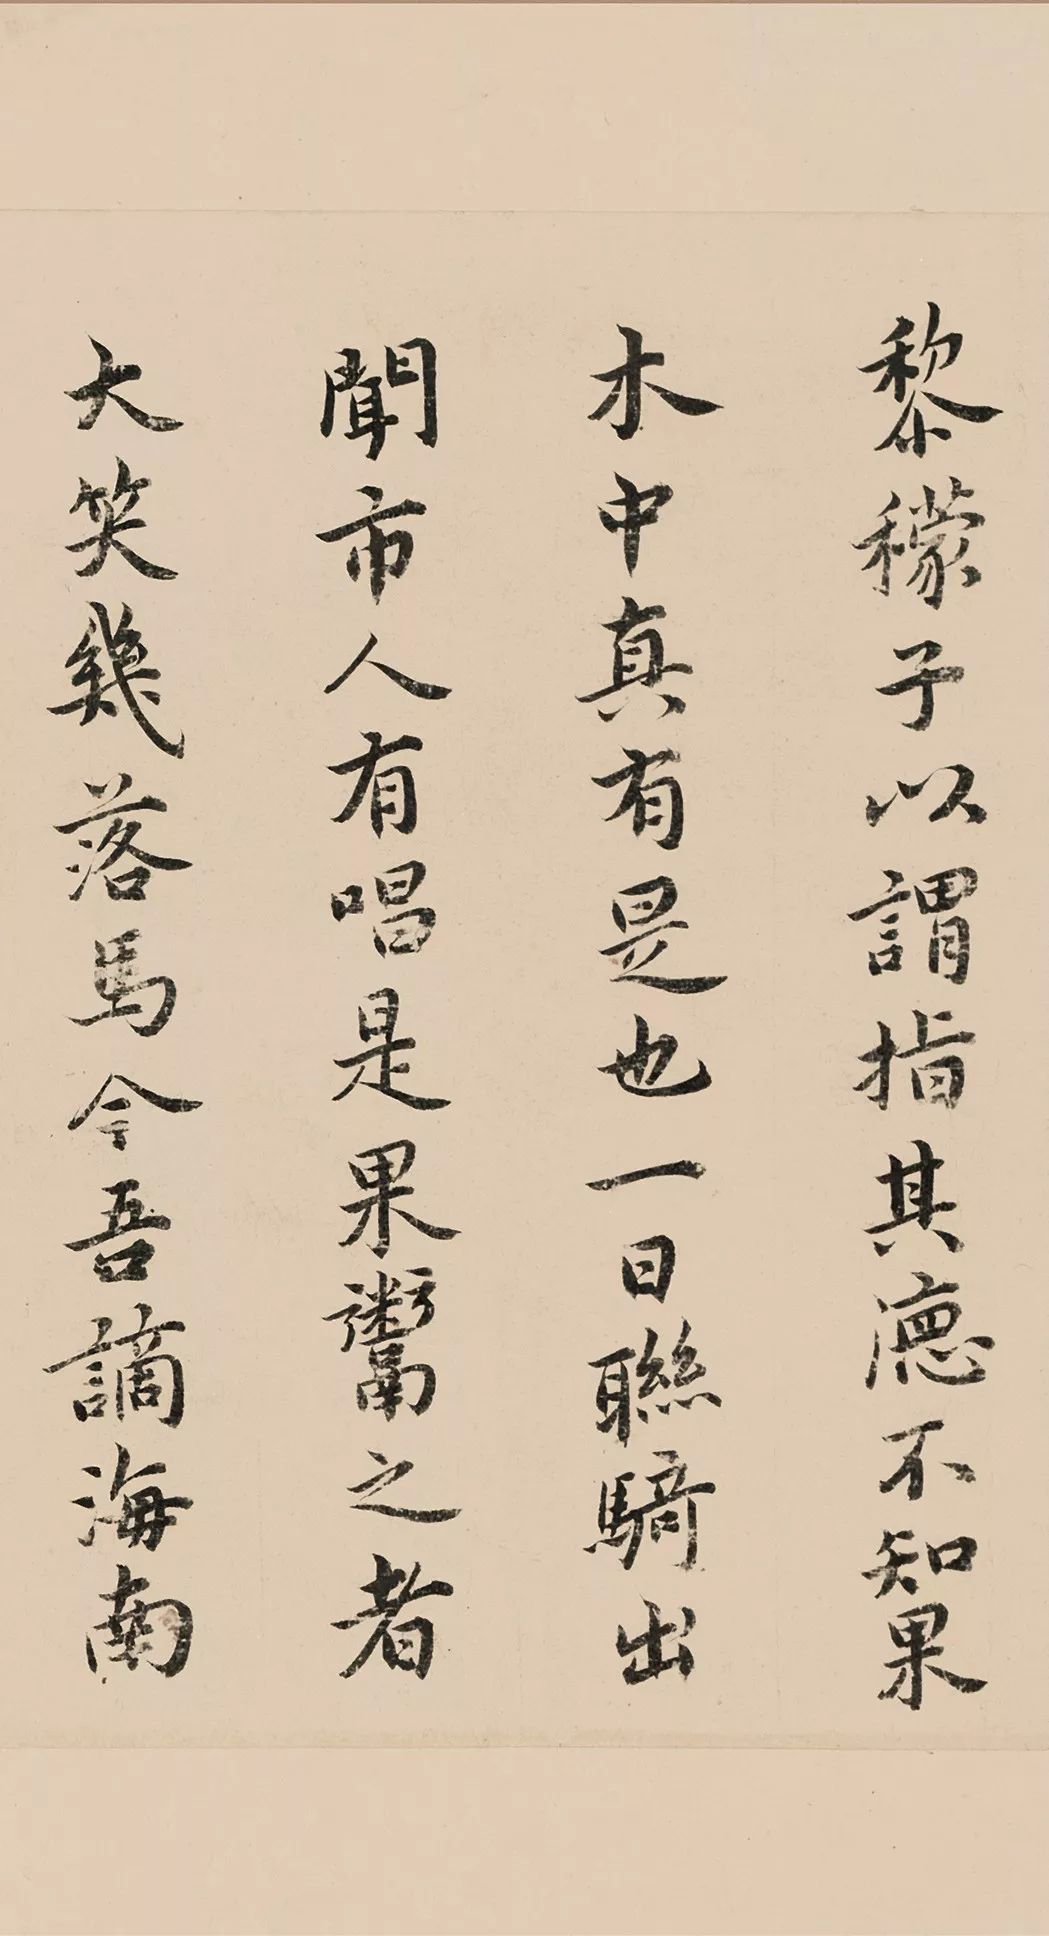 黎檬子以謂指其德不知果
木中真有是也一日聯騎出
聞市人有唱是果鬻之者
大笑幾落馬今吾謫海南